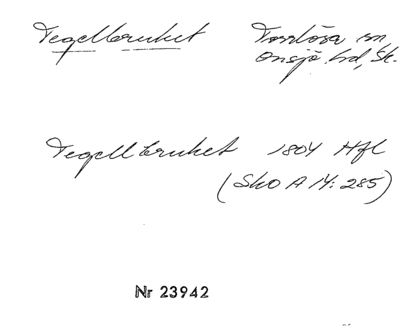 Tegelbruket Torrlösa sn,
Onsjö hd, Sk.
Tegelbruket 1804 Hfl
(Sko A IV: 285)
Nr 23942